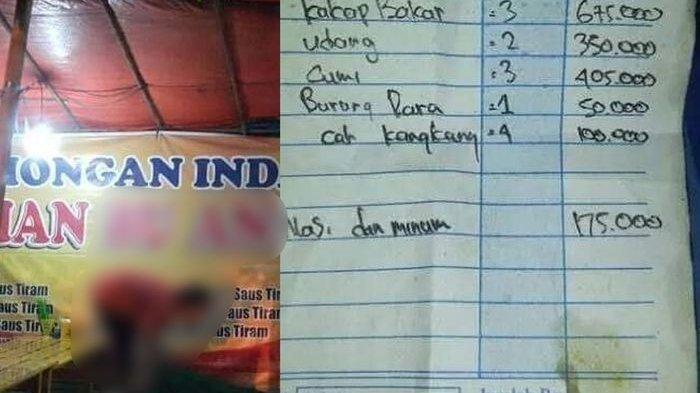 HONGAN IND
IAN
Saus Tiram
Saus Tiram
Saus Tir
Saus Ti
aus Tiram
us Tiram
Kakap Bakar =3 675.000
Udang =2 350.000
Cumi =3 405.000
Burung Dara =1 50.000
cah kangkung =4 100.000
Nasi dan minum 175.000